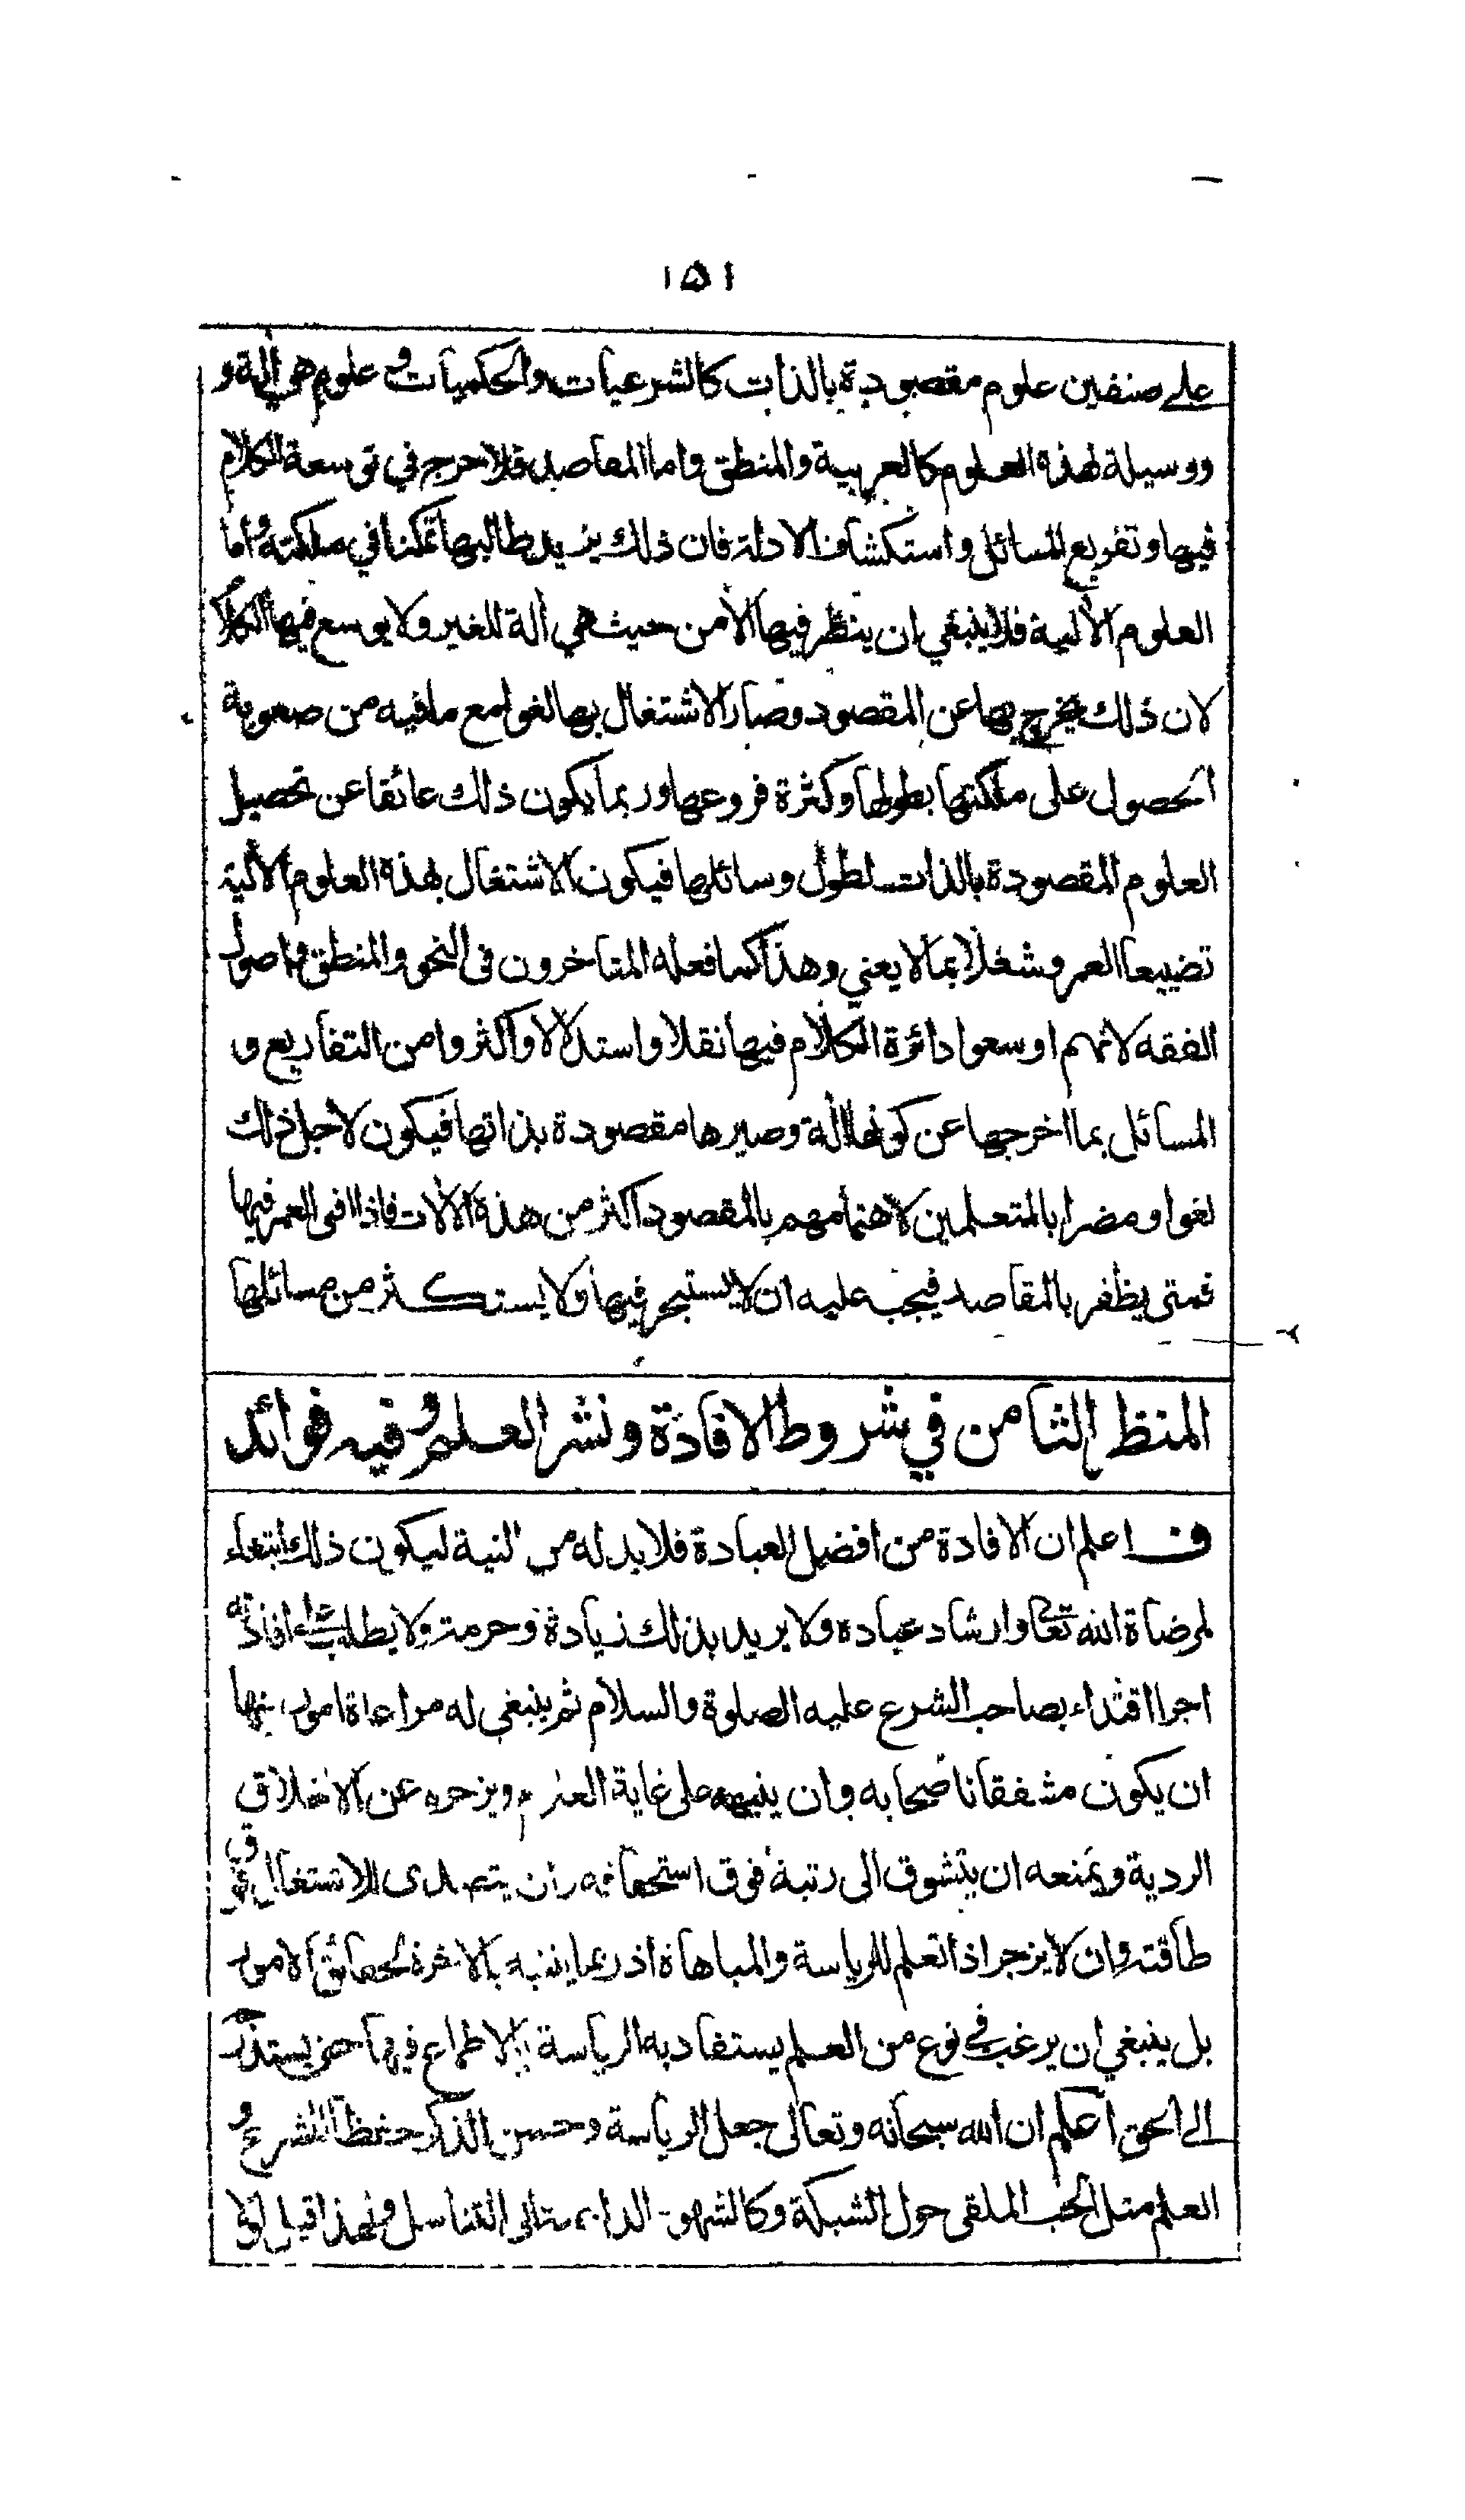 ١٥١
على صنفين علوم مقصودة بالذات كالشرعيات والحكميات وعلوم هي آلية و
ووسيلة لهذه العلوم كالعربية والمنطق واما المقاصد فلا حرج في توسعة الكلام
فيها وتفريع المسائل واستكشاف الادلة فان ذلك يزيد طالبها تمكنا في ملكته واما
العلوم الآلية فلا ينبغي ان ينظر فيها الا من حيث هي آلة للغير ولا يوسع فيها الكلام
لان ذلك يخرج بها عن المقصود وصار الاشتغال بها لغوا مع ما فيه من صعوبة
الحصول على ملكتها بطولها وكثرة فروعها وربما يكون ذلك عائقا عن تحصيل
العلوم المقصودة بالذات لطول وسائلها فيكون الاشتغال بهذه العلوم الآلية
تضييعا العمر وشغلا بما لا يعني وهذا كما فعله المتاخرون فى النحو والمنطق واصول
الفقه لانهم اوسعوا دائرة الكلام فيها نقلا واستدلالا واكثروا من التفاريع و
المسائل بما اخرجها عن كونها آلة وصيرها مقصودة بذاتها فيكون لاجل ذلك
لغوا ومضرا بالمتعلمين لاهتمامهم بالمقصود اكثر من هذه الآلات فاذا افنى العمر فيها
فمتى يظفر بالمقاصد فيجب عليه ان لا يستبحر فيها ولا يستكثر من مسائلها
المنظر الثامن في شروط الافادة ونشر العلم وفيه فوائد
ف اعلم ان الافادة من افضل العبادة فلا بد له من النية ليكون ذلك ابتغاء
لمرضاة الله تعالى وارشاد عباده ولا يريد بذلك زيادة وحرمة ولا يطلب على افادته
اجرا اقتداء بصاحب الشرع عليه الصلوة والسلام ثم ينبغي له مراعاة امور منها
ان يكون مشفقا ناصحا به وان ينبهه على غاية العلوم ويزجره عن الاخلاق
الردية ويمنعه ان يتشوق الى رتبة فوق استحقاقه وان يتصدى للاشتغال فوق
طاقته وان لا يزجر اذا تعلم للرياسة والمباهاة اذ ربما يتنبه بالاخرة لحقائق الامور
بل ينبغي ان يرغب في نوع من العلم يستفاد به الرياسة بالاطماع فيها حتى يستدرج
الى الحق اعلم ان الله سبحانه وتعالى جعل الرياسة وحسن الذكر حفظا للشرع و
العلم مثل الحب الملقى حول الشبكة وكالشهوة الداعية الى التناسل ولهذا قيل لولا